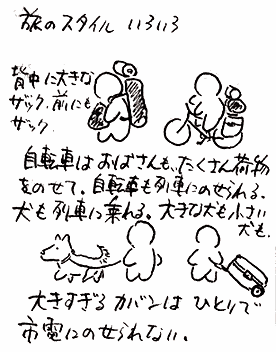 旅のスタイル いろいろ
背中に大きな
ザック、前にも
ザック
自転車はおばさんも、たくさん荷物
をのせて。自転車も列車にのせられる。
犬も列車に乗れる。大きな犬も小さい
犬も。
大きすぎるカバンは ひとりで
市電にのせられない。